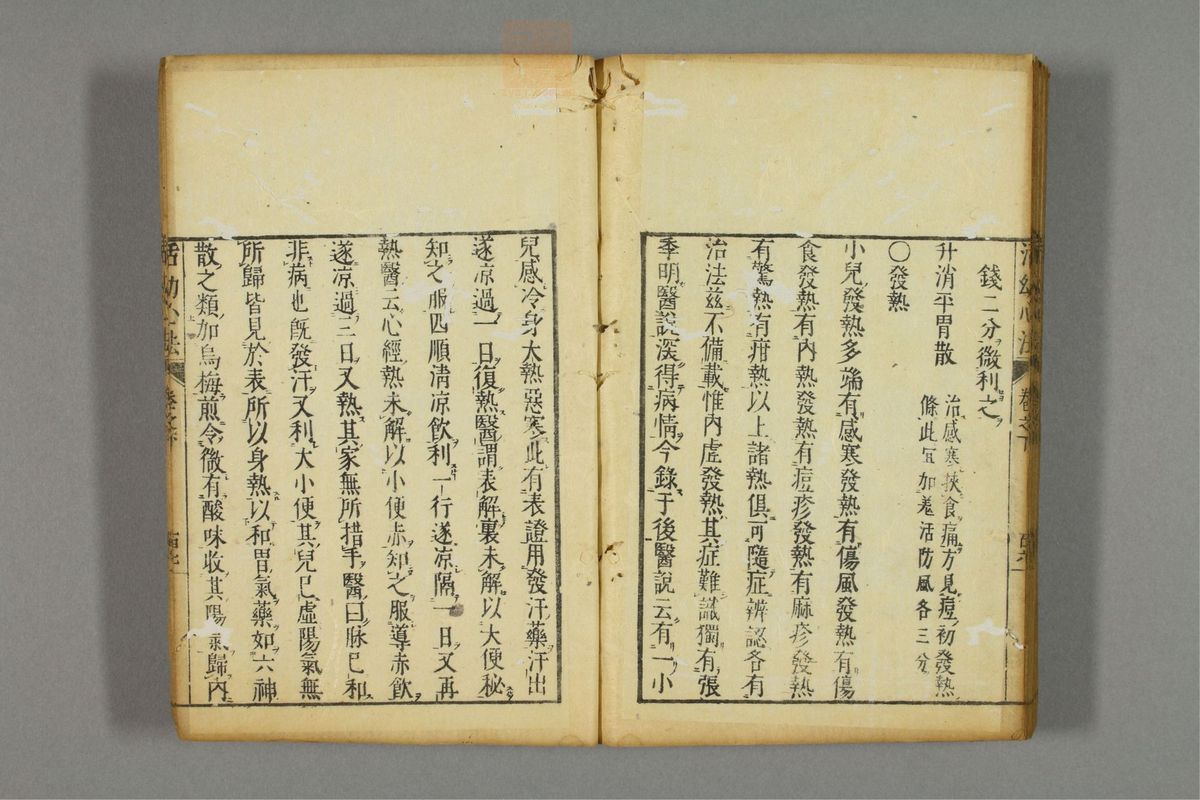 錢二分微利之
升消平胃散
治感寒挾食痛方見痘初發熱
條此宜加羗活防風各三分
○發熱
小兒發熱多端有感寒發熱有傷風發熱有傷
食發熱有內熱發熱有痘疹發熱有麻疹發熱
有驚熱有疳熱以上諸熱俱可隨症辨認各有
治法玆不備載惟內虛發熱其症難識獨有張
季明醫說深得病情今錄于後醫說云有一小
兒感冷身大熱惡寒此有表證用發汗藥汗出
遂凉過一日復熱醫謂表解裏未解以大便秘
知之服四順淸凉飲利一行遂凉隔一日又再
熱醫云心經熱未解以小便赤知之服導赤飲
遂凉過三日又熱其家無所措手醫曰脉已和
非病也旣發汗又利大小便其兒已虛陽氣無
所歸皆見於表所以身熱以和胃氣藥如六神
散之類加烏梅煎令微有酸味收其陽氣歸內
活幼心法 卷之下